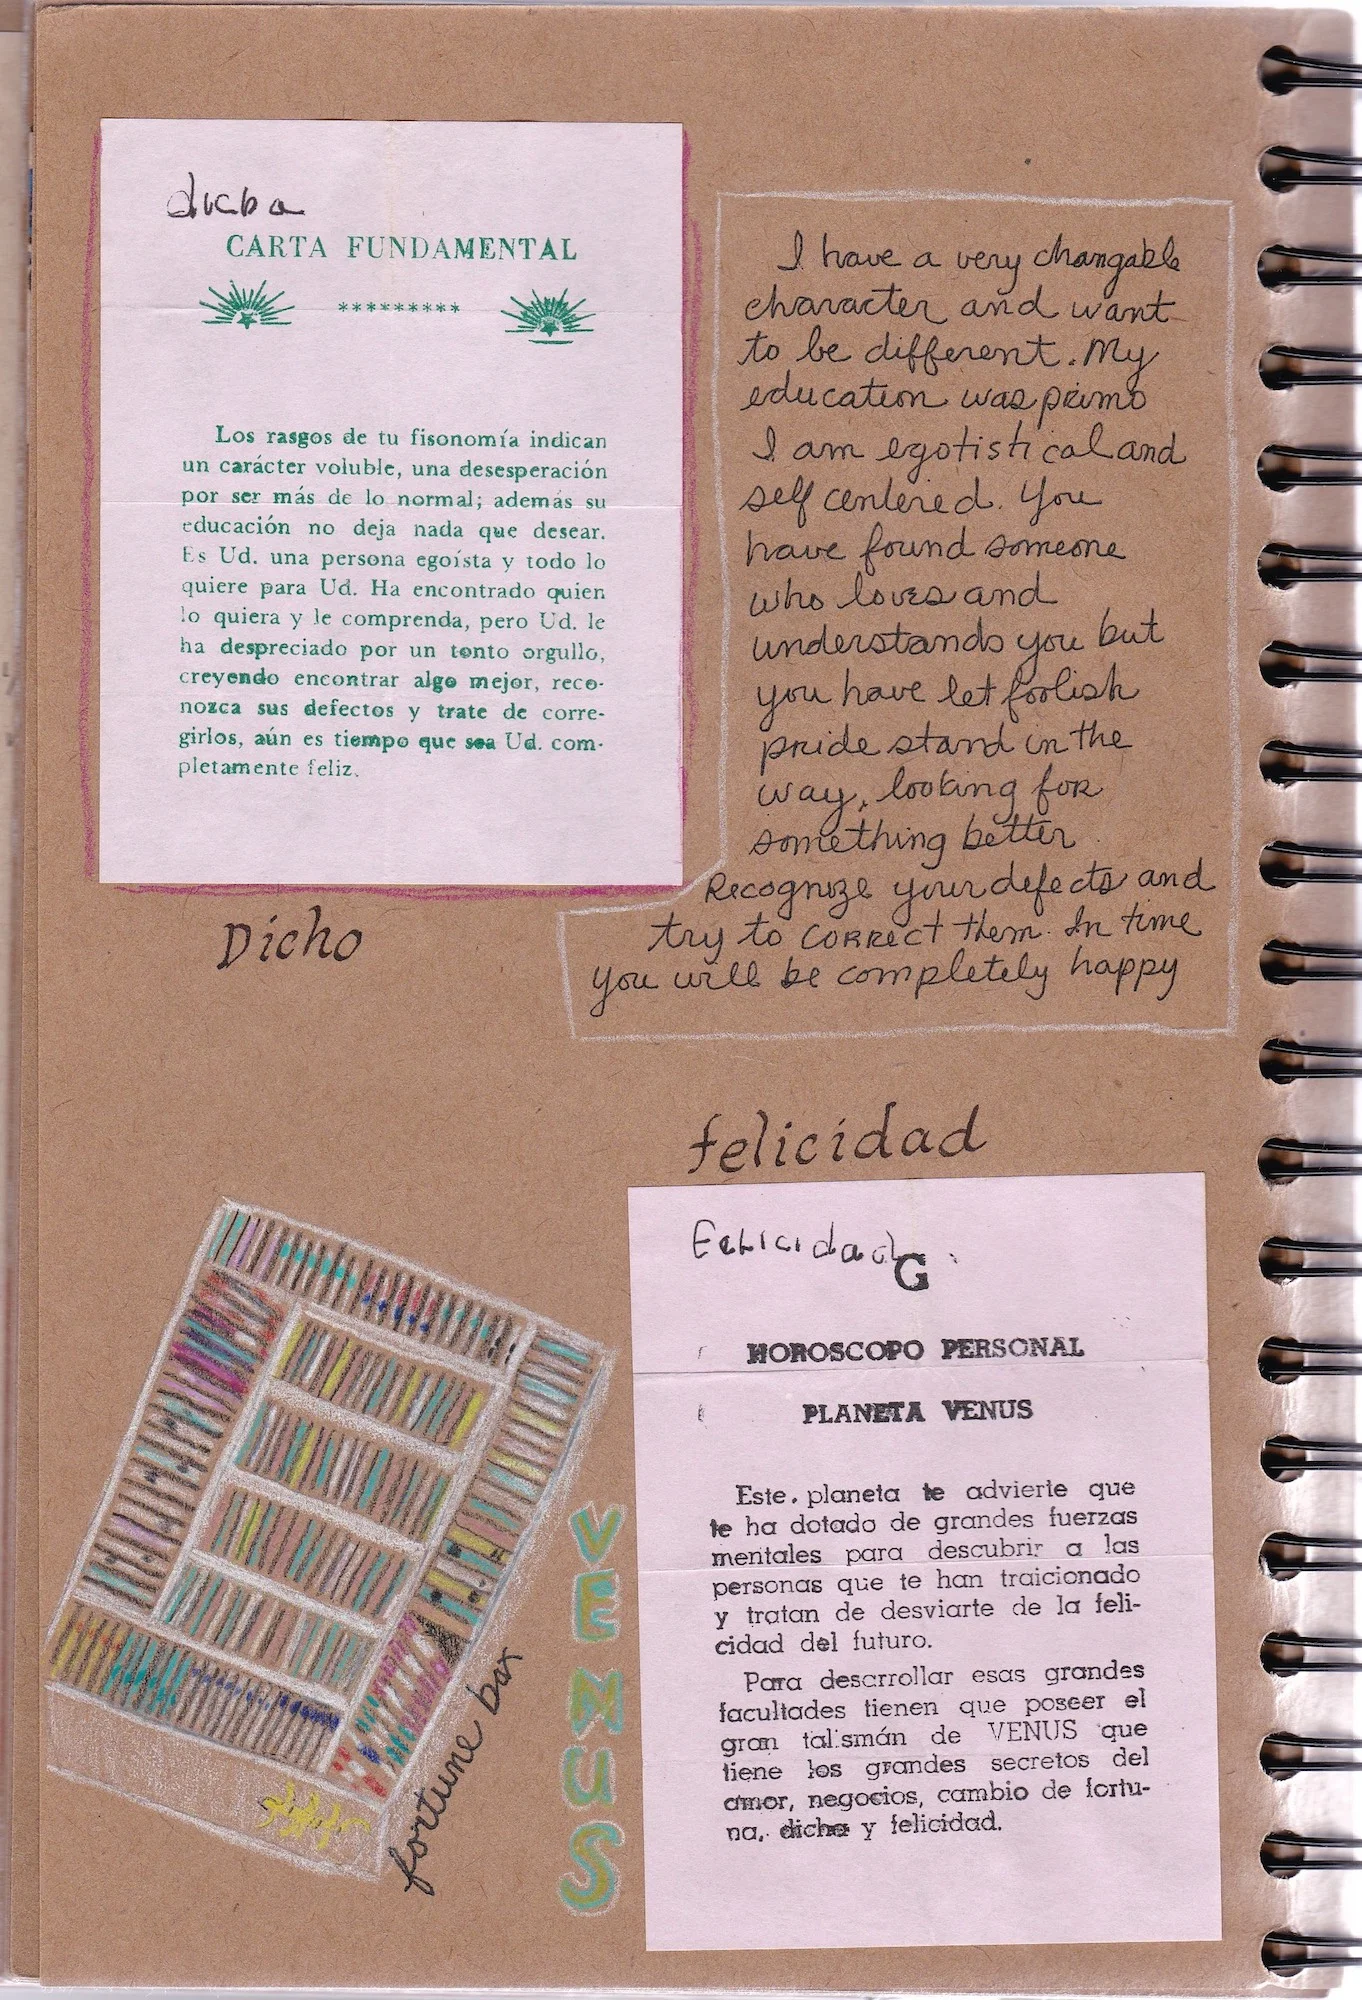 dicha
CARTA FUNDAMENTAL
*********
Los rasgos de tu fisonomía indican
un carácter voluble, una desesperación
por ser más de lo normal; además su
educación no deja nada que desear.
Es Ud. una persona egoísta y todo lo
quiere para Ud. Ha encontrado quien
lo quiera y le comprenda, pero Ud. le
ha despreciado por un tonto orgullo,
creyendo encontrar algo mejor, reco-
nozca sus defectos y trate de corre-
girlos, aún es tiempo que sea Ud. com-
pletamente feliz.
Dicho
I have a very changable
character and want
to be different. My
education was primo
I am egotistical and
self centered. You
have found someone
who loves and
understands you but
you have let foolish
pride stand in the
way, looking for
something better
Recognize your defects and
try to correct them. In time
you will be completely happy
felicidad
Felicidad
G
HOROSCOPO PERSONAL
PLANETA VENUS
Este planeta te advierte que
te ha dotado de grandes fuerzas
mentales para descubrir a las
personas que te han traicionado
y tratan de desviarte de la feli-
cidad del futuro.
Para desarrollar esas grandes
facultades tienen que poseer el
gran talismán de VENUS que
tiene los grandes secretos del
amor, negocios, cambio de fortu-
na, dicha y felicidad.
VENUS
fortune box